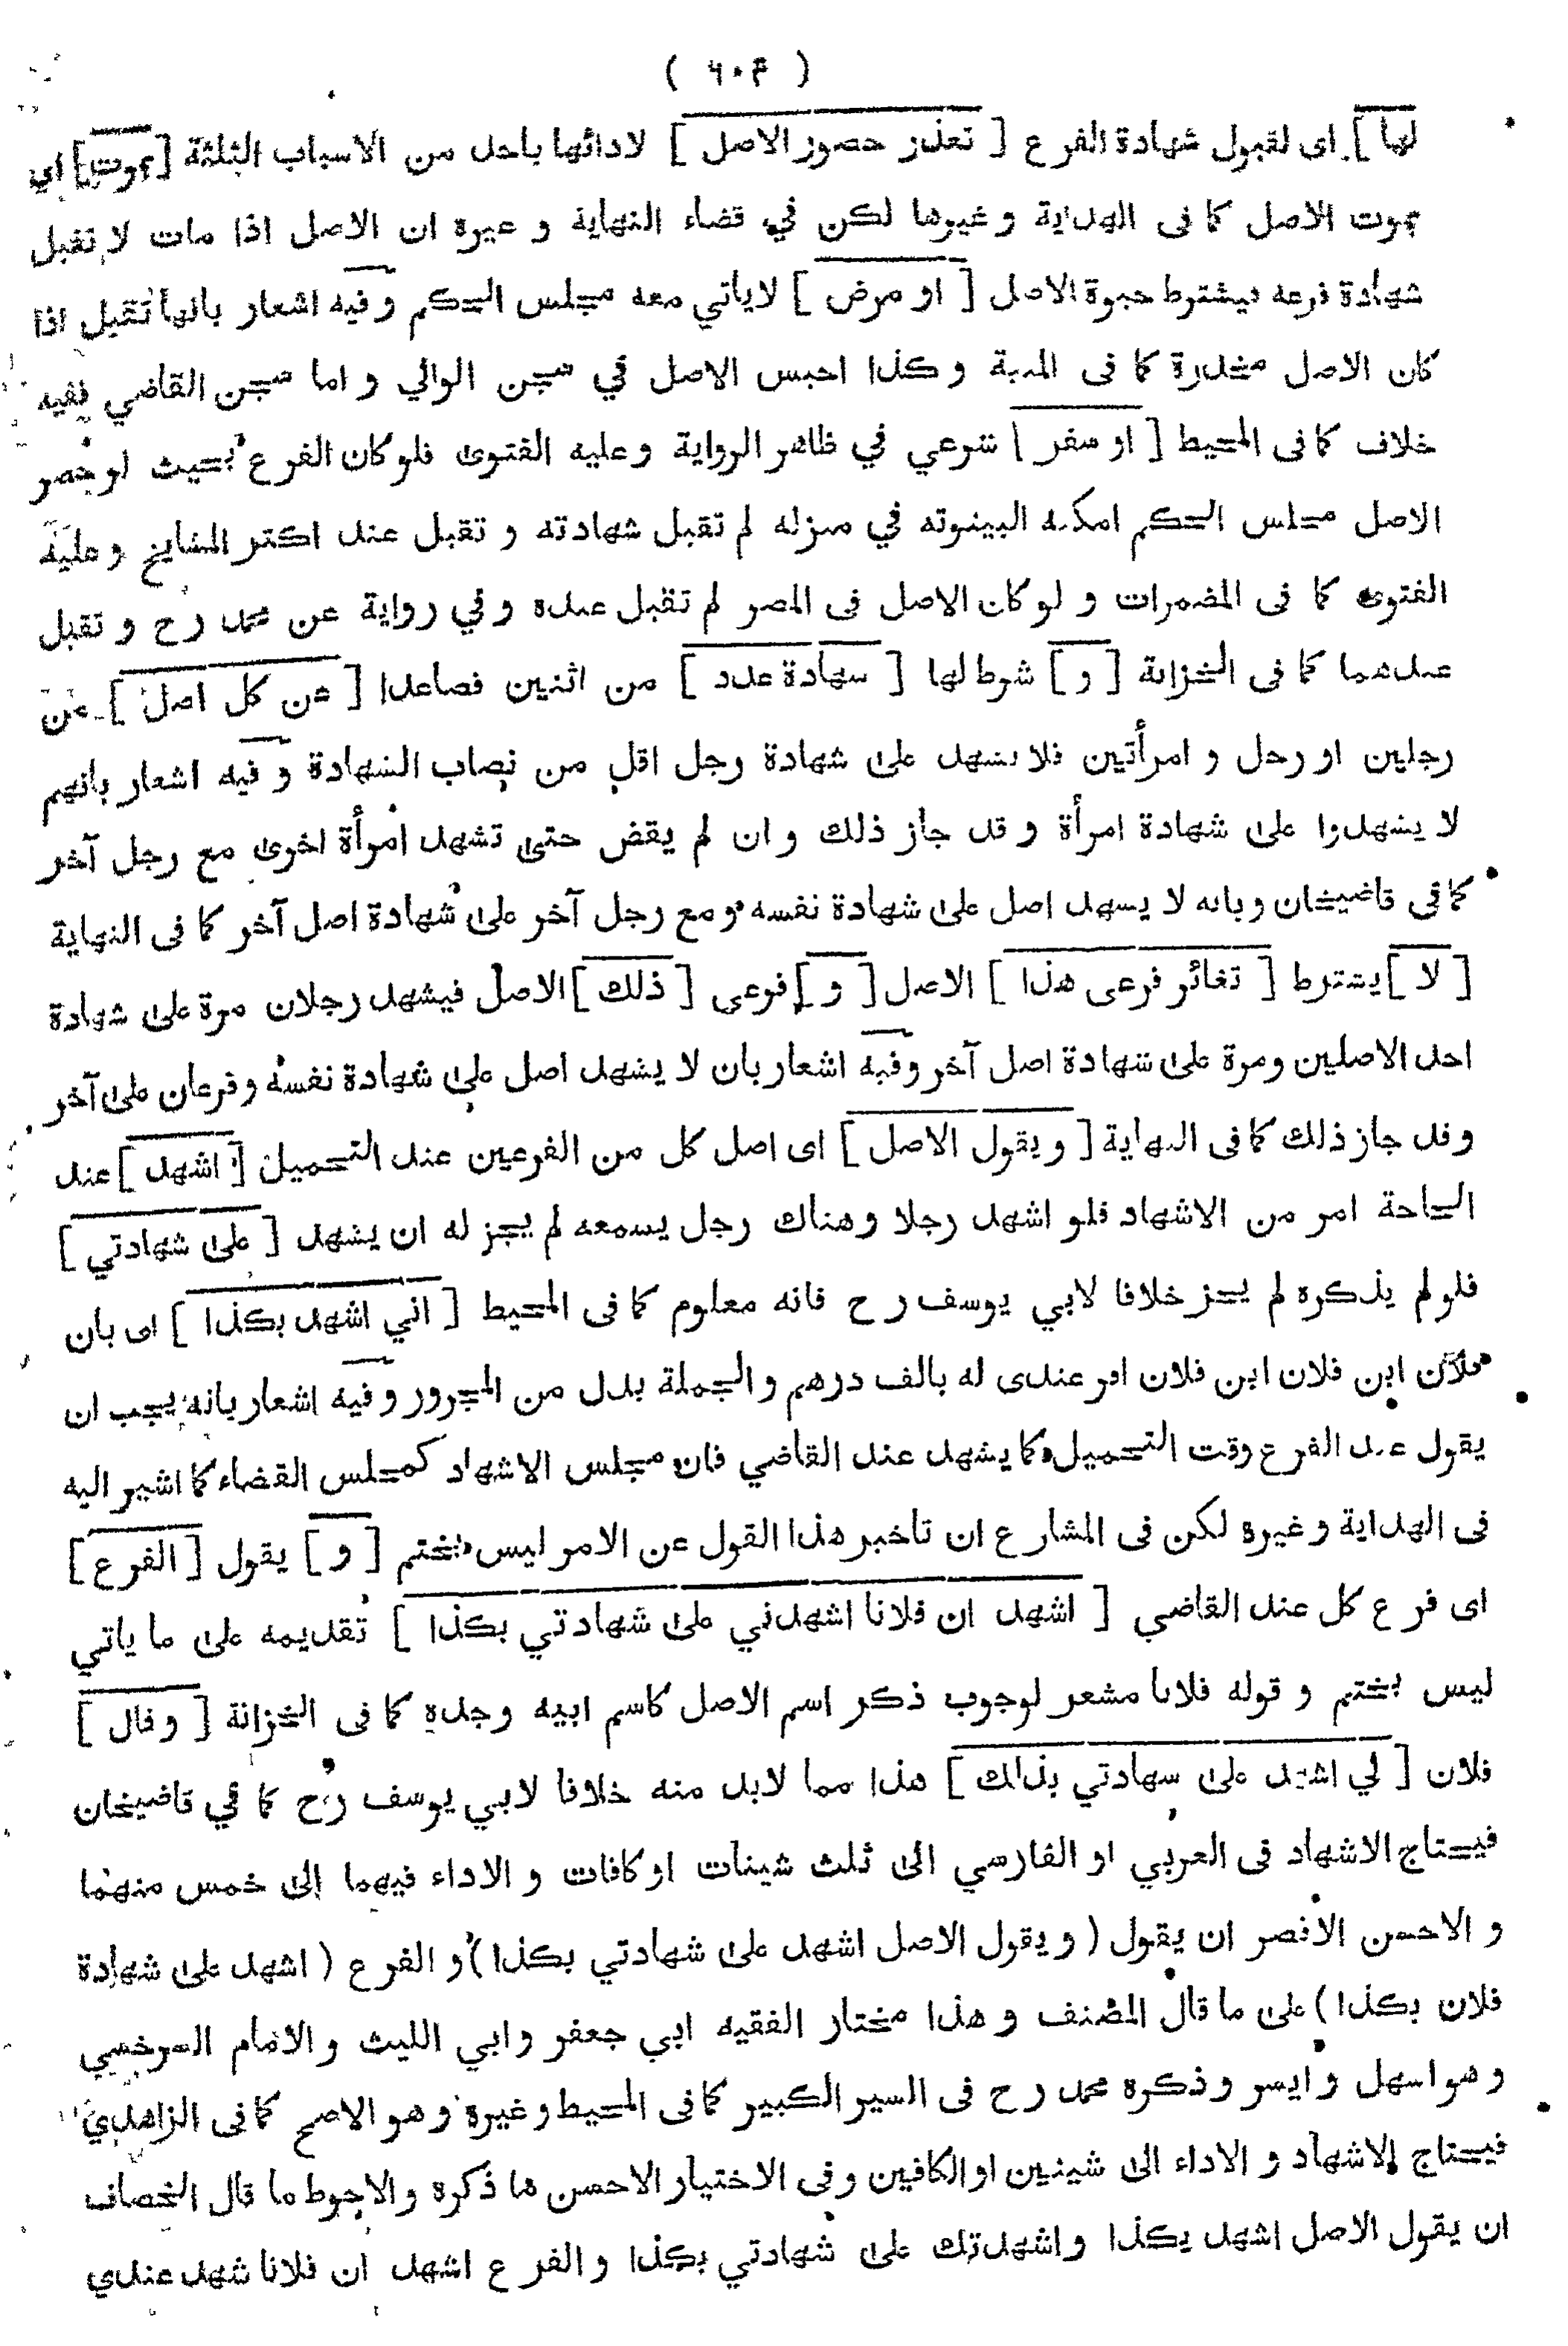 ( ٦٠٣ )
لها ] اى لقبول شهادة الفرع [ تعذر حضور الاصل ] لادائها باحد من الاسباب الثلثة [ بموت ] اي
بموت الاصل كما فى الهداية و غيرها لكن في قضاء النهاية و غيره ان الاصل اذا مات لا تقبل
شهادة فرعه فيشترط حيوة الاصل [ او مرض ] لاياتي معه مجلس الحكم و فيه اشعار بانها تقبل اذا
كان الاصل مخدرة كما فى المنية و كذا احبس الاصل في سجن الوالي و اما سجن القاضي ففيه
خلاف كما فى المحيط [ او سفر ] شرعي في ظاهر الرواية و عليه الفتوى فلو كان الفرع بحيث لو حضر
الاصل مجلس الحكم امكنه البيتوتة في منزله لم تقبل شهادته و تقبل عند اكثر المشايخ و عليه
الفتوى كما فى المضمرات و لو كان الاصل فى المصر لم تقبل عنده و في رواية عن محمد رح و تقبل
عندهما كما فى الخزانة [ و ] شرط لها [ شهادة عدد ] من اثنين فصاعدا [ عن كل اصل ] عن
رجلين او رجل و امرأتين فلا يشهد على شهادة رجل اقل من نصاب الشهادة و فيه اشعار بانهم
لا يشهدوا على شهادة امرأة و قد جاز ذلك و ان لم يقض حتى تشهد امرأة اخرى مع رجل آخر
كما فى قاضيخان و بانه لا يشهد اصل على شهادة نفسه و مع رجل آخر على شهادة اصل آخر كما فى النهاية
[ لا ] يشترط [ تغائر فرعى هذا ] الاصل [ و ] فرعى [ ذلك ] الاصل فيشهد رجلان مرة على شهادة
احد الاصلين و مرة على شهادة اصل آخر و فيه اشعار بان لا يشهد اصل على شهادة نفسه و فرعان على آخر
و قد جاز ذلك كما فى النهاية [ و يقول الاصل ] اى اصل كل من الفرعين عند التحميل [ اشهد ] عند
الحاجة امر من الاشهاد فلو اشهد رجلا و هناك رجل يسمعه لم يجز له ان يشهد [ على شهادتي ]
فلو لم يذكره لم يجز خلافا لابي يوسف رح فانه معلوم كما فى المحيط [ اني اشهد بكذا ] اى بان
فلان ابن فلان ابن فلان اقر عندى له بالف درهم و الجملة بدل من المجرور و فيه اشعار بانه يجب ان
يقول عند الفرع وقت التحميل كما يشهد عند القاضي فان مجلس الاشهاد كمجلس القضاء كما اشير اليه
فى الهداية و غيره لكن فى المشارع ان تاخير هذا القول عن الامر ليس بختم [ و ] يقول [ الفرع ]
اى فرع كل عند القاضي [ اشهد ان فلانا اشهدني على شهادتي بكذا ] تقديمه على ما ياتي
ليس بختم و قوله فلانا مشعر لوجوب ذكر اسم الاصل كاسم ابيه و جده كما فى الخزانة [ و قال ]
فلان [ لي اشهد على شهادتي بذلك ] هذا مما لابد منه خلافا لابي يوسف رح كما في قاضيخان
فيحتاج الاشهاد فى العربي او الفارسي الى ثلث شينات او كافات و الاداء فيهما الى خمس منهما
و الاحسن الاقصر ان يقول ( و يقول الاصل اشهد على شهادتي بكذا ) و الفرع ( اشهد على شهادة
فلان بكذا ) على ما قال المصنف و هذا مختار الفقيه ابي جعفر و ابي الليث و الامام السرخسي
و هو اسهل و ايسر و ذكره محمد رح فى السير الكبير كما فى المحيط و غيره و هو الاصح كما فى الزاهدي
فيحتاج الاشهاد و الاداء الى شينين او الكافين و فى الاختيار الاحسن ما ذكره و الاحوط ما قال الخصاف
ان يقول الاصل اشهد بكذا و اشهدتك على شهادتي بكذا و الفرع اشهد ان فلانا شهد عندي